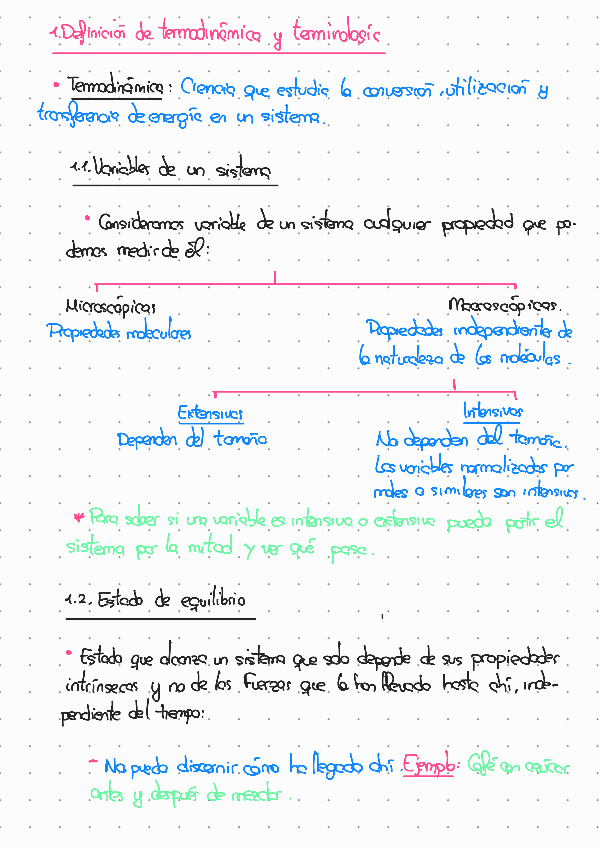 1. Definición de termodinámica y terminología
• Termodinámica: Ciencia que estudia la conversión, utilización y
transferencia de energía en un sistema.
1.1. Variables de un sistema
• Consideramos variable de un sistema cualquier propiedad que po-
demos medir de él:
Microscópicas
Macroscópicas.
Propiedades moleculares
Propiedades independiente de
la naturaleza de las moléculas.
Extensivas
Intensivas
Dependen del tamaño
No dependen del tamaño.
Las variables normalizadas por
moles o similares son intensivas.
* Para saber si una variable es intensiva o extensiva puedo partir el
sistema por la mitad y ver qué pasa.
1.2. Estado de equilibrio
• Estado que alcanza un sistema que solo depende de sus propiedades
intrínsecas y no de las fuerzas que la han llevado hasta ahí, inde-
pendiente del tiempo:
- No puedo discernir cómo ha llegado ahí. Ejemplo: Café con azúcar
antes y después de mezclar.